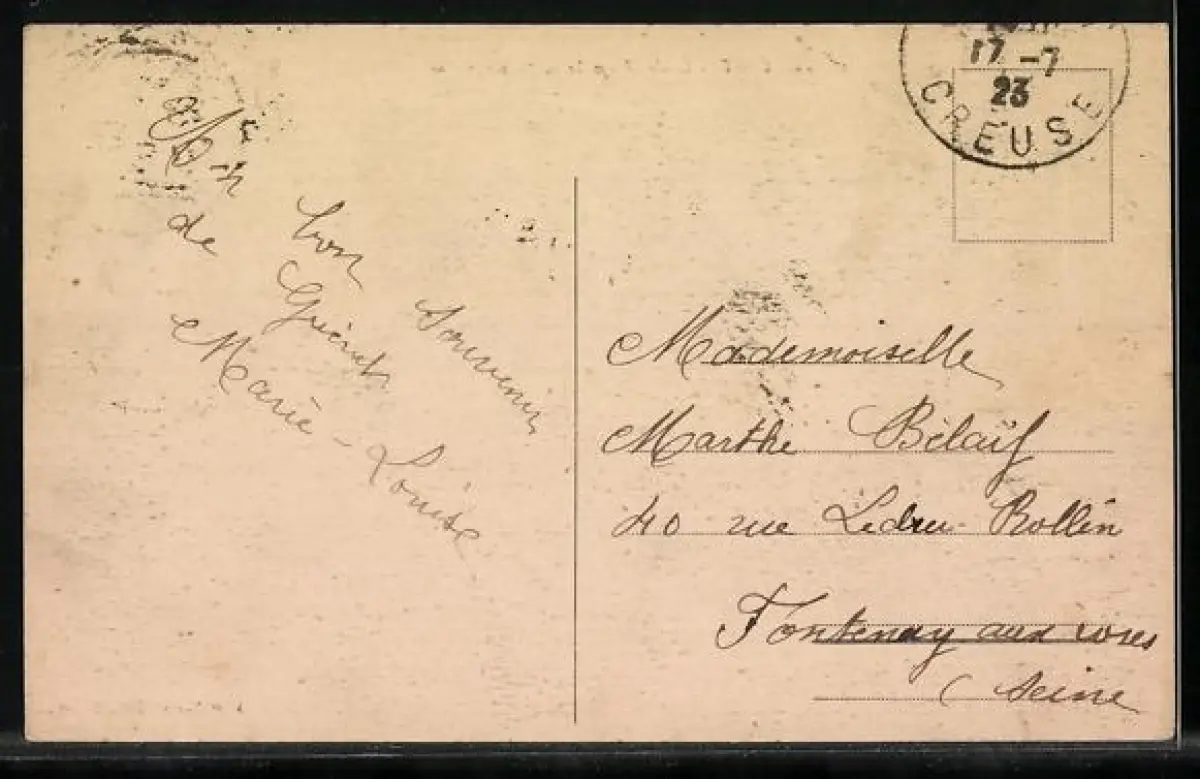 17 -7
23
CREUSE
Un
bon souvenir
de Guéret
Marie-Louise
Mademoiselle
Marthe Bélaïf
40 rue Ledru-Rollin
Fontenay aux roses
(Seine